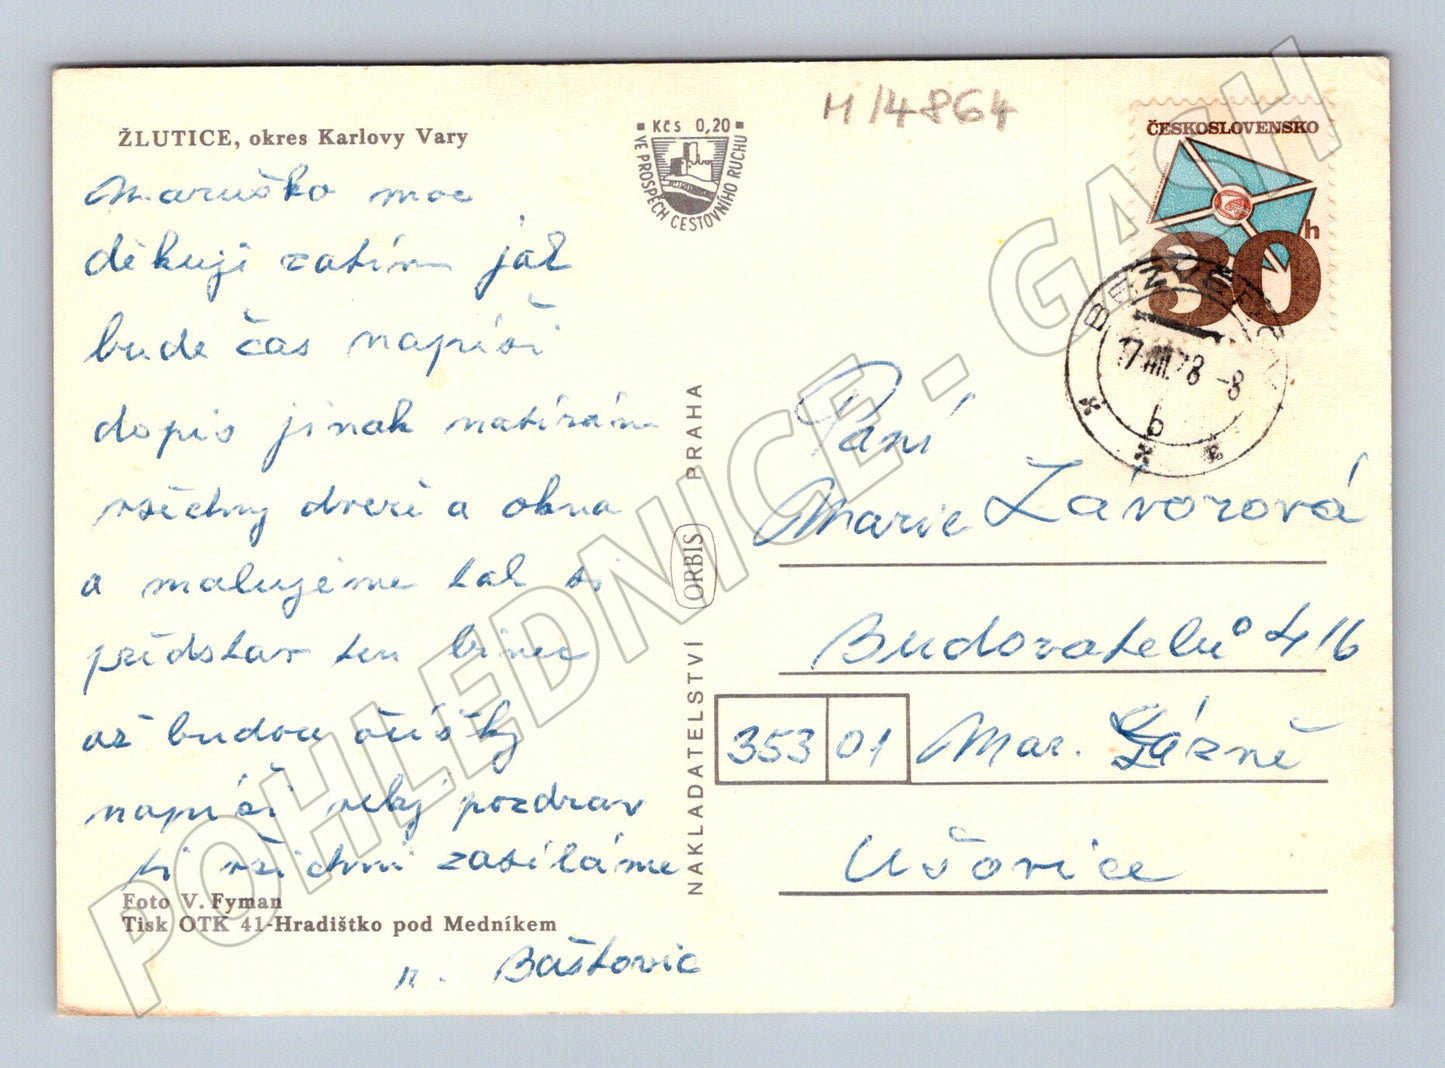 ŽLUTICE, okres Karlovy Vary
Maruško moc
děkuji zatím jak
bude čas napíši
dopis jinak natírám
všechny dveře a okna
a malujeme tak si
představ ten binec
až budou čúšky
napíši velký pozdrav
ti všichni zasíláme
Foto V. Fyman
Tisk OTK 41-Hradištko pod Medníkem
r. Baštovic
Kčs 0,20
VE PROSPĚCH CESTOVNÍHO RUCHU
NAKLADATELSTVÍ ORBIS PRAHA
M 14864
ČESKOSLOVENSKO
30h
17.VIII.78 -8
b
Paní
Marie Závorová
Budovatelů 416
353 01 Mar. Lázně
Ušovice
POHLEDNICE - GASH